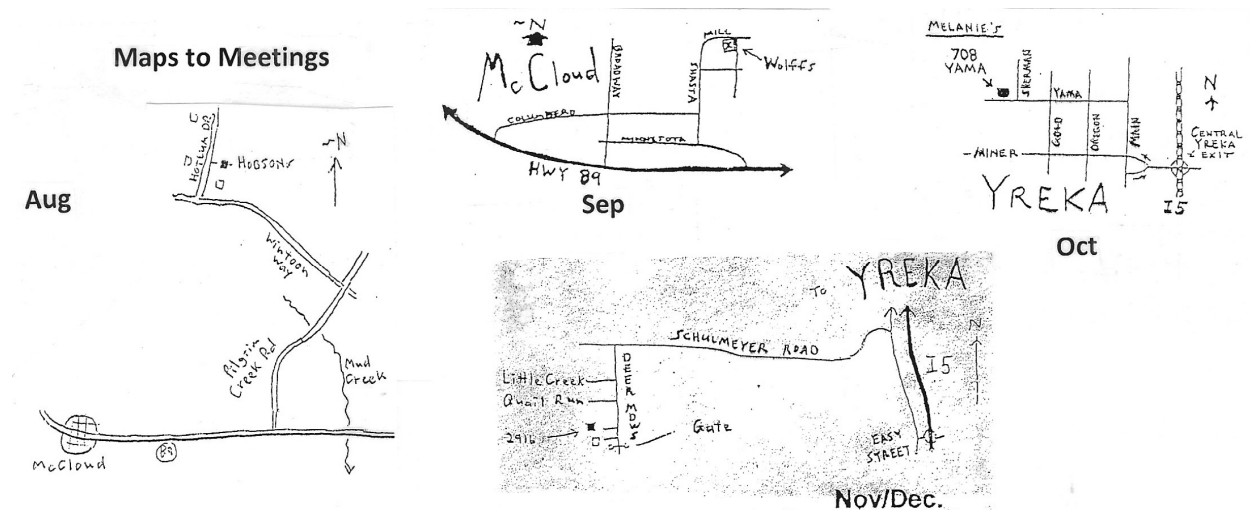 Maps to Meetings
Aug
HOTLUM DR
HOBSONS
~N
Wintoon
Way
Pilgrim
Creek Rd
Mud
Creek
McCloud
89
~N
McCloud
BROADWAY
MILL
SHASTA
Wolffs
COLUMBERO
MINNESOTA
HWY 89
Sep
MELANIE'S
708
YAMA
SHERMAN
YAMA
N
GOLD
OREGON
MAIN
CENTRAL
YREKA
EXIT
MINER
YREKA
I5
Oct
To YREKA
N
SCHULMEYER ROAD
I5
DEER MDWS
Little Creek
Quail Run
2916
Gate
EASY
STREET
Nov/Dec.